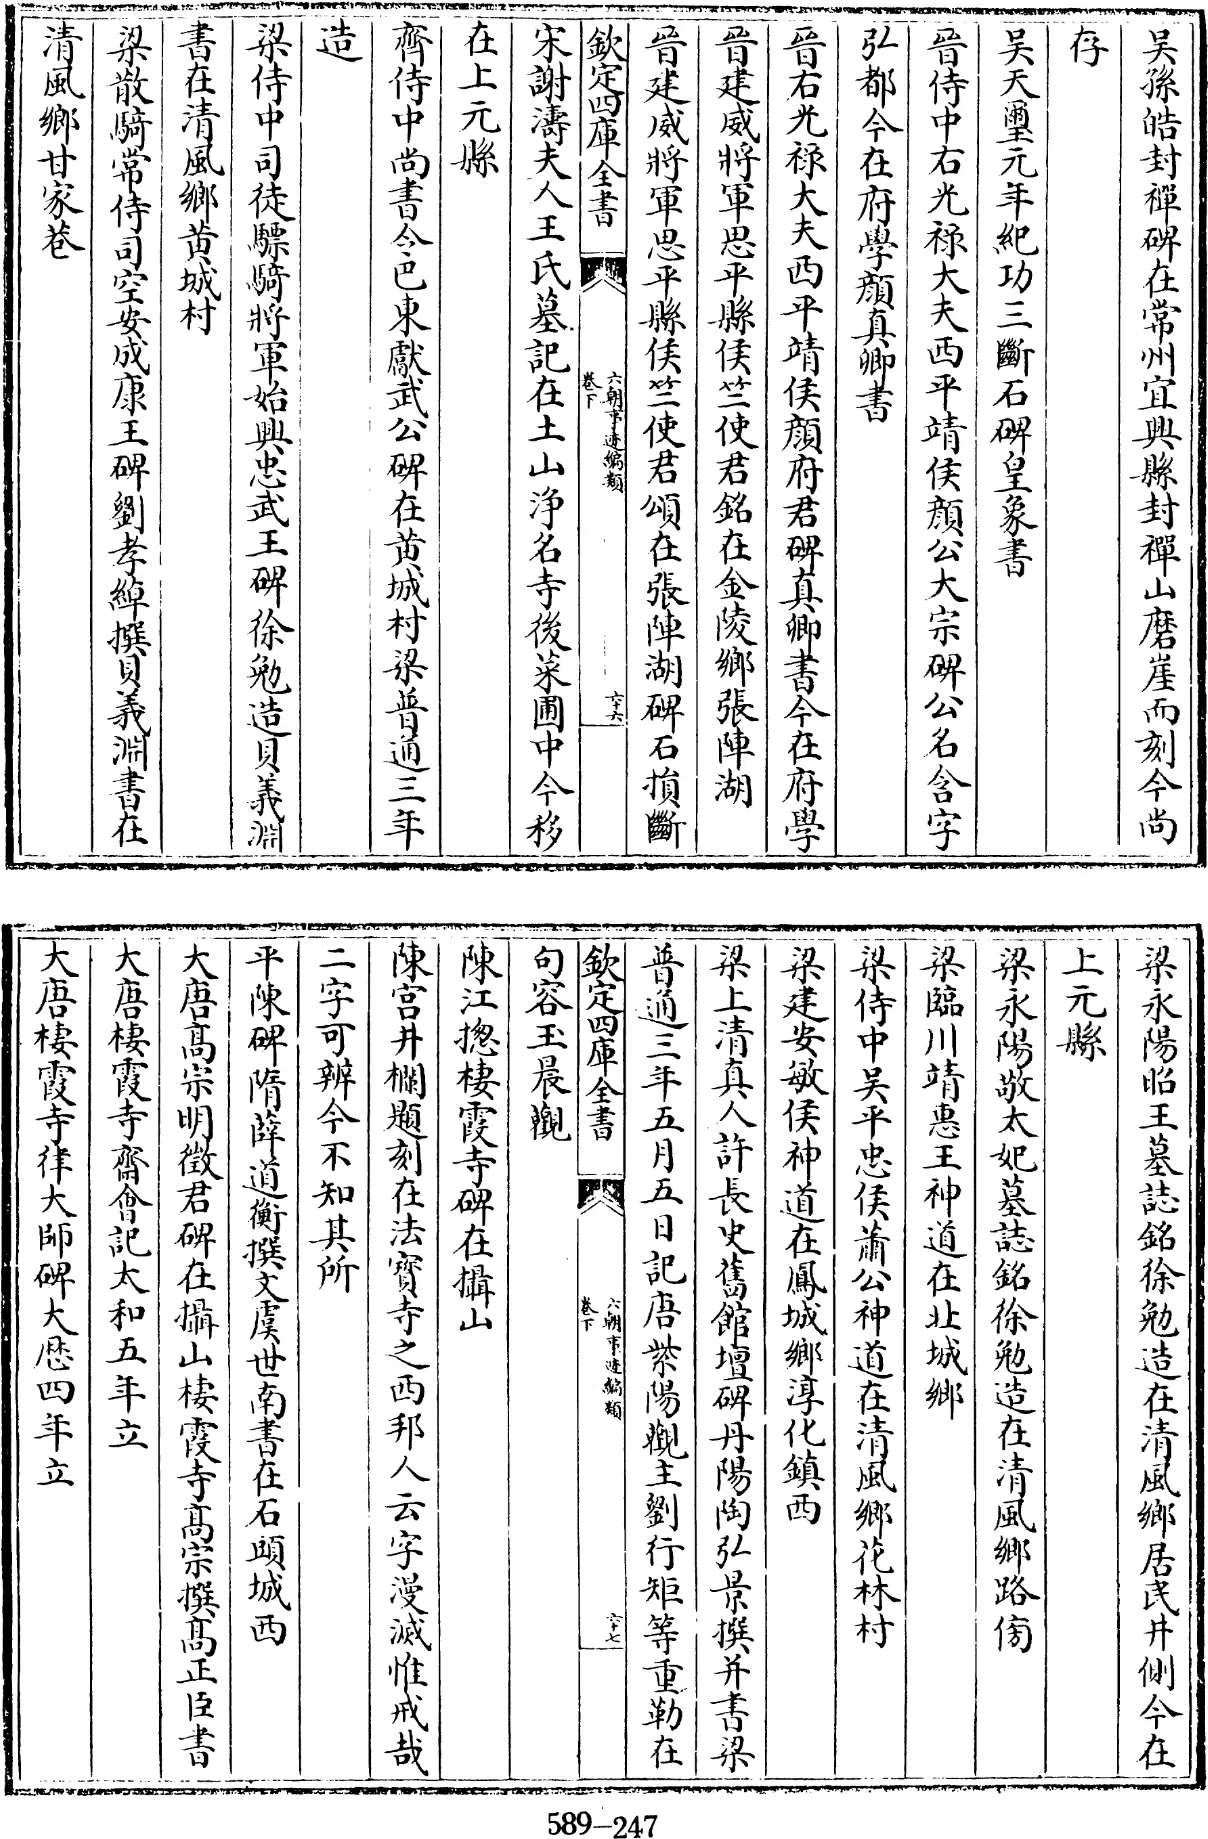 吳孫皓封禪碑在常州宜興縣封禪山磨崖而刻今尚
存
吳天璽元年紀功三斷石碑皇象書
晉侍中右光禄大夫西平靖侯顔公大宗碑公名含字
弘都今在府學顔真卿書
晉右光禄大夫西平靖侯顔府君碑真卿書今在府學
晉建威將軍思平縣侯竺使君銘在金陵鄉張陣湖
晉建威將軍思平縣侯竺使君頌在張陣湖碑石損斷
欽定四庫全書
六朝事迹編類
卷下
六十六
宋謝濤夫人王氏墓記在土山浄名寺後菜圃中今移
在上元縣
齊侍中尚書令巴東獻武公碑在黄城村梁普通三年
造
梁侍中司徒驃騎將軍始興忠武王碑徐勉造貝義淵
書在清風鄉黄城村
梁散騎常侍司空安成康王碑劉孝綽撰貝義淵書在
清風鄉甘家巷
梁永陽昭王墓誌銘徐勉造在清風鄉居民井側今在
上元縣
梁永陽敬太妃墓誌銘徐勉造在清風鄉路傍
梁臨川靖惠王神道在北城鄉
梁侍中吴平忠侯蕭公神道在清風鄉花林村
梁建安敏侯神道在鳳城鄉淳化鎮西
梁上清真人許長史舊館壇碑丹陽陶弘景撰并書梁
普通三年五月五日記唐紫陽觀主劉行矩等重勒在
欽定四庫全書
六朝事迹編類
卷下
六十七
句容玉晨觀
陳江揔棲霞寺碑在攝山
陳宫井欄題刻在法寶寺之西邦人云字漫滅惟戒哉
二字可辨今不知其所
平陳碑隋薛道衡撰文虞世南書在石頭城西
大唐高宗明徵君碑在攝山棲霞寺高宗撰高正臣書
大唐棲霞寺齋會記太和五年立
大唐棲霞寺律大師碑大歴四年立
589-247